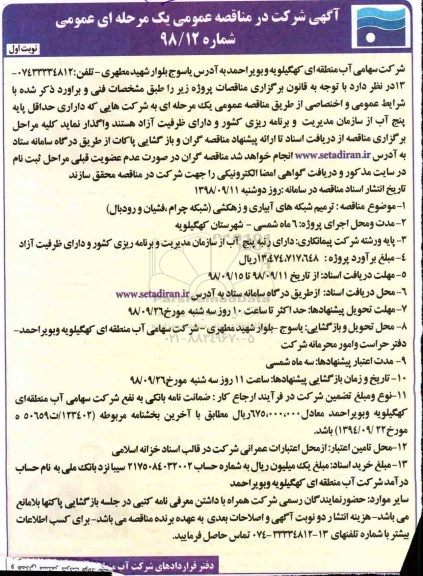 آگهی شرکت در مناقصه عمومی یک مرحله ای عمومی
شماره ۹۸/۱۲
نوبت اول
شرکت سهامی آب منطقه ای کهگیلویه وبویراحمد به آدرس یاسوج بلوار شهید مطهری - تلفن: ۰۷۴۳۳۳۳۴۸۱۲-
۱۳ در نظر دارد با توجه به قانون برگزاری مناقصات پروژه زیر را طبق مشخصات فنی و براورد ذکر شده با
شرایط عمومی و اختصاصی از طریق مناقصه عمومی یک مرحله ای به شرکت هایی که داراری حداقل پایه
پنج آب از سازمان مدیریت و برنامه ریزی کشور و دارای ظرفیت آزاد هستند واگذار نماید کلیه مراحل
برگزاری مناقصه از دریافت اسناد تا ارائه پیشنهاد مناقصه گران و باز گشایی پاکات از طریق درگاه سامانه ستاد
به آدرس www.setadiran.ir انجام خواهد شد مناقصه گران در صورت عدم عضویت قبلی مراحل ثبت نام
در سایت مذکور و دریافت گواهی امضا الکترونیکی را جهت شرکت در مناقصه محقق سازند
تاریخ انتشار اسناد مناقصه در سامانه :روز دوشنبه ۱۳۹۸/۰۹/۱۱
۱-موضوع مناقصه : ترمیم شبکه های آبیاری و زهکشی (شبکه چرام ،فشیان و رودبال)
۲-مدت ومحل اجرای پروژه: ۶ ماه شمسی - شهرستان کهگیلویه
۳- پایه ورشته شرکت پیمانکاری: دارای رتبه پنج آب از سازمان مدیریت و برنامه ریزی کشور و دارای ظرفیت آزاد
۴-مبلغ برآورد پروژه : ۱۳،۴۷۴،۷۱۷،۶۴۸ریال
۵-مهلت دریافت اسناد: از تاریخ ۹۸/۰۹/۱۱ تا ۹۸/۰۹/۱۵
۶- محل دریافت اسناد: ازطریق درگاه سامانه ستاد به آدرس www.setadiran.ir
۷- مهلت تحویل پیشنهادها: حداکثر تا ساعت ۱۰ روز سه شنبه مورخ۹۸/۰۹/۲۶
۸- محل تحویل و بازگشایی: یاسوج -بلوار شهید مطهری - شرکت سهامی آب منطقه ای کهگیلویه وبویراحمد-
دفتر حراست وامور محرمانه شرکت
۹- مدت اعتبار پیشنهادها: سه ماه شمسی
۱۰- تاریخ و زمان بازگشایی پیشنهادها: ساعت ۱۱ روز سه شنبه مورخ۹۸/۰۹/۲۶
۱۱-نوع ومبلغ تضمین شرکت در فرآیند ارجاع کار : ضمانت نامه بانکی به نفع شرکت سهامی آب منطقه‌ای
کهگیلویه وبویراحمد معادل۶۷۵،۰۰۰،۰۰۰ریال مطابق با آخرین بخشنامه مربوطه (۱۲۳۴۰۲/ت۵۰۶۵۹ ه
مورخ ۱۳۹۴/۰۹/۲۲) باشد.
۱۲-محل تامین اعتبار: ازمحل اعتبارات عمرانی شرکت در قالب اسناد خزانه اسلامی
۱۳- مبلغ خرید اسناد: مبلغ یک میلیون ریال به شماره حساب ۲۱۷۵۰۸۴۰۳۲۰۰۲ سیبا نزد بانک ملی به نام حساب
درآمد شرکت آب منطقه ای کهگیلویه وبویراحمد
سایر موارد: حضورنمایندگان رسمی شرکت همراه با داشتن معرفی نامه کتبی در جلسه بازگشایی پاکتها بلامانع
می باشد- هزینه انتشار دو نوبت آگهی و اصلاحات بعدی به عهده برنده مناقصه می باشد- برای کسب اطلاعات
بیشتر با شماره تلفنهای ۱۳-۳۳۳۳۴۸۱۲-۰۷۴ تماس حاصل فرمایید.
دفتر قراردادهای شرکت آب